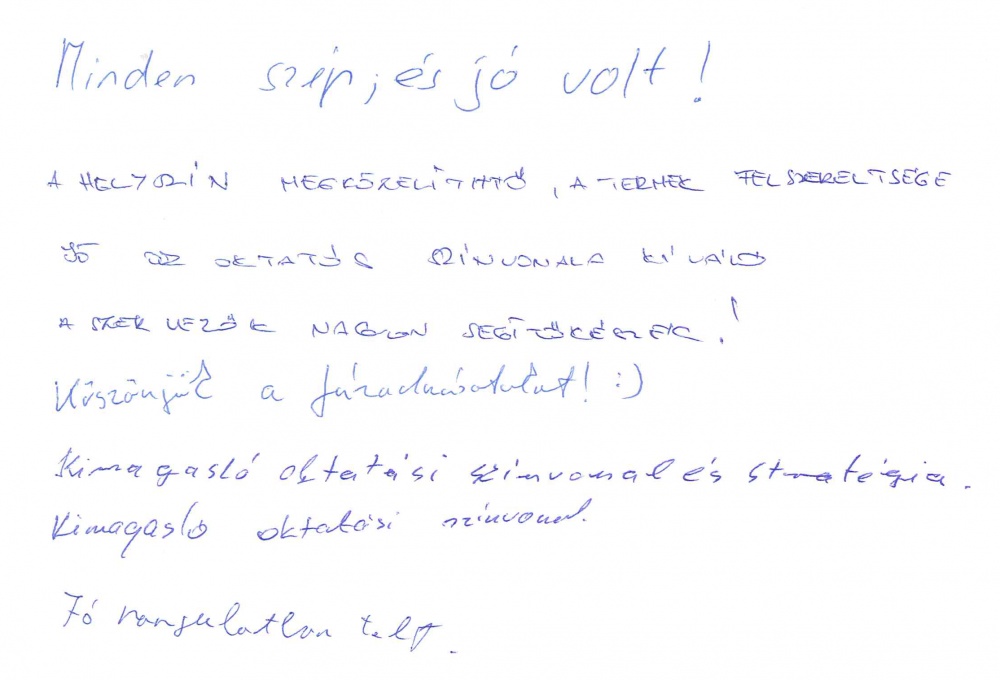 Minden szép, és jó volt!
A HELYSZÍN MEGKÖZELÍTHTŐ, A TERMEK FELSZERELTSÉGE
JÓ AZ OKTATÁS SZÍNVONALA KIVÁLÓ
A SZERVEZŐK NAGYON SEGÍTŐKÉSZEK!
Köszönjük a fáradozásotokat! :)
Kimagasló oktatási színvonal és stratégia.
Kimagasló oktatási színvonal.
Jó hangulatban telt.